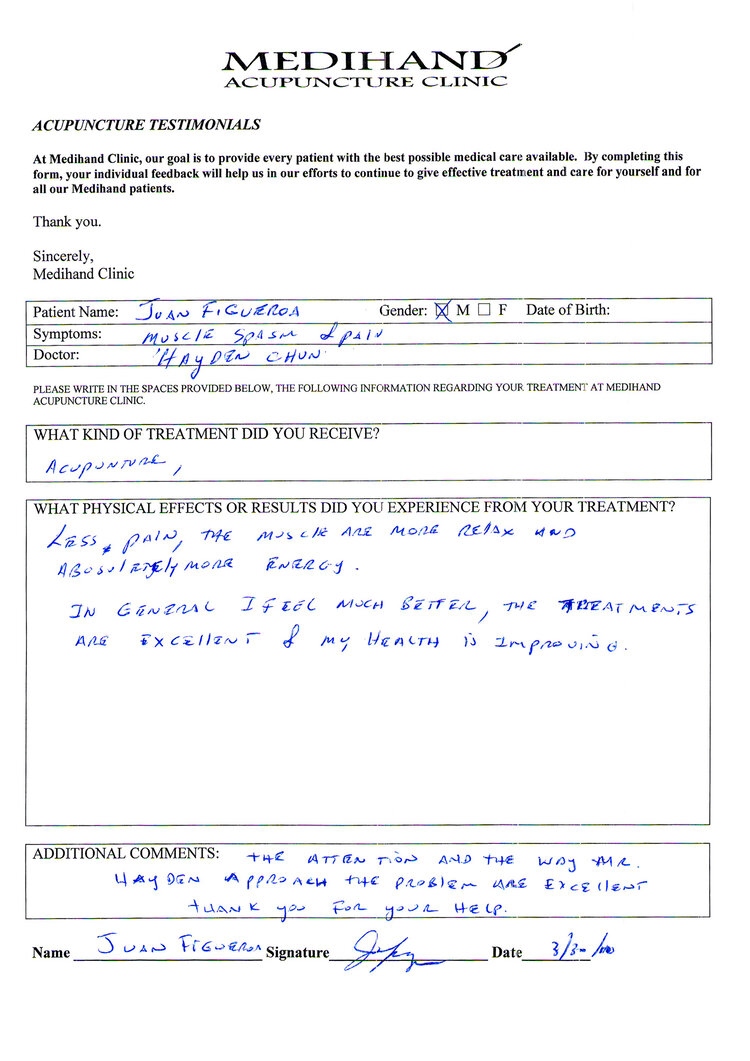 MEDIHAND
ACUPUNCTURE CLINIC
ACUPUNCTURE TESTIMONIALS
At Medihand Clinic, our goal is to provide every patient with the best possible medical care available. By completing this
form, your individual feedback will help us in our efforts to continue to give effective treatment and care for yourself and for
all our Medihand patients.
Thank you.
Sincerely,
Medihand Clinic
Patient Name: JUAN FIGUEROA Gender: ☒ M ☐ F Date of Birth:
Symptoms: MUSCLE SPASM & PAIN
Doctor: HAYDEN CHUN
PLEASE WRITE IN THE SPACES PROVIDED BELOW, THE FOLLOWING INFORMATION REGARDING YOUR TREATMENT AT MEDIHAND
ACUPUNCTURE CLINIC.
WHAT KIND OF TREATMENT DID YOU RECEIVE?
ACUPUNTURE,
WHAT PHYSICAL EFFECTS OR RESULTS DID YOU EXPERIENCE FROM YOUR TREATMENT?
LESS PAIN, THE MUSCLE ARE MORE RELAX AND
ABOSULETELY MORE ENERGY.
IN GENERAL I FEEL MUCH BETTER, THE TREATMENTS
ARE EXCELLENT & MY HEALTH IS IMPROVING.
ADDITIONAL COMMENTS: THE ATTENTION AND THE WAY MR.
HAYDEN APPROACH THE PROBLEM ARE EXCELLENT
THANK YOU FOR YOUR HELP.
Name JUAN FIGUEROA Signature Date